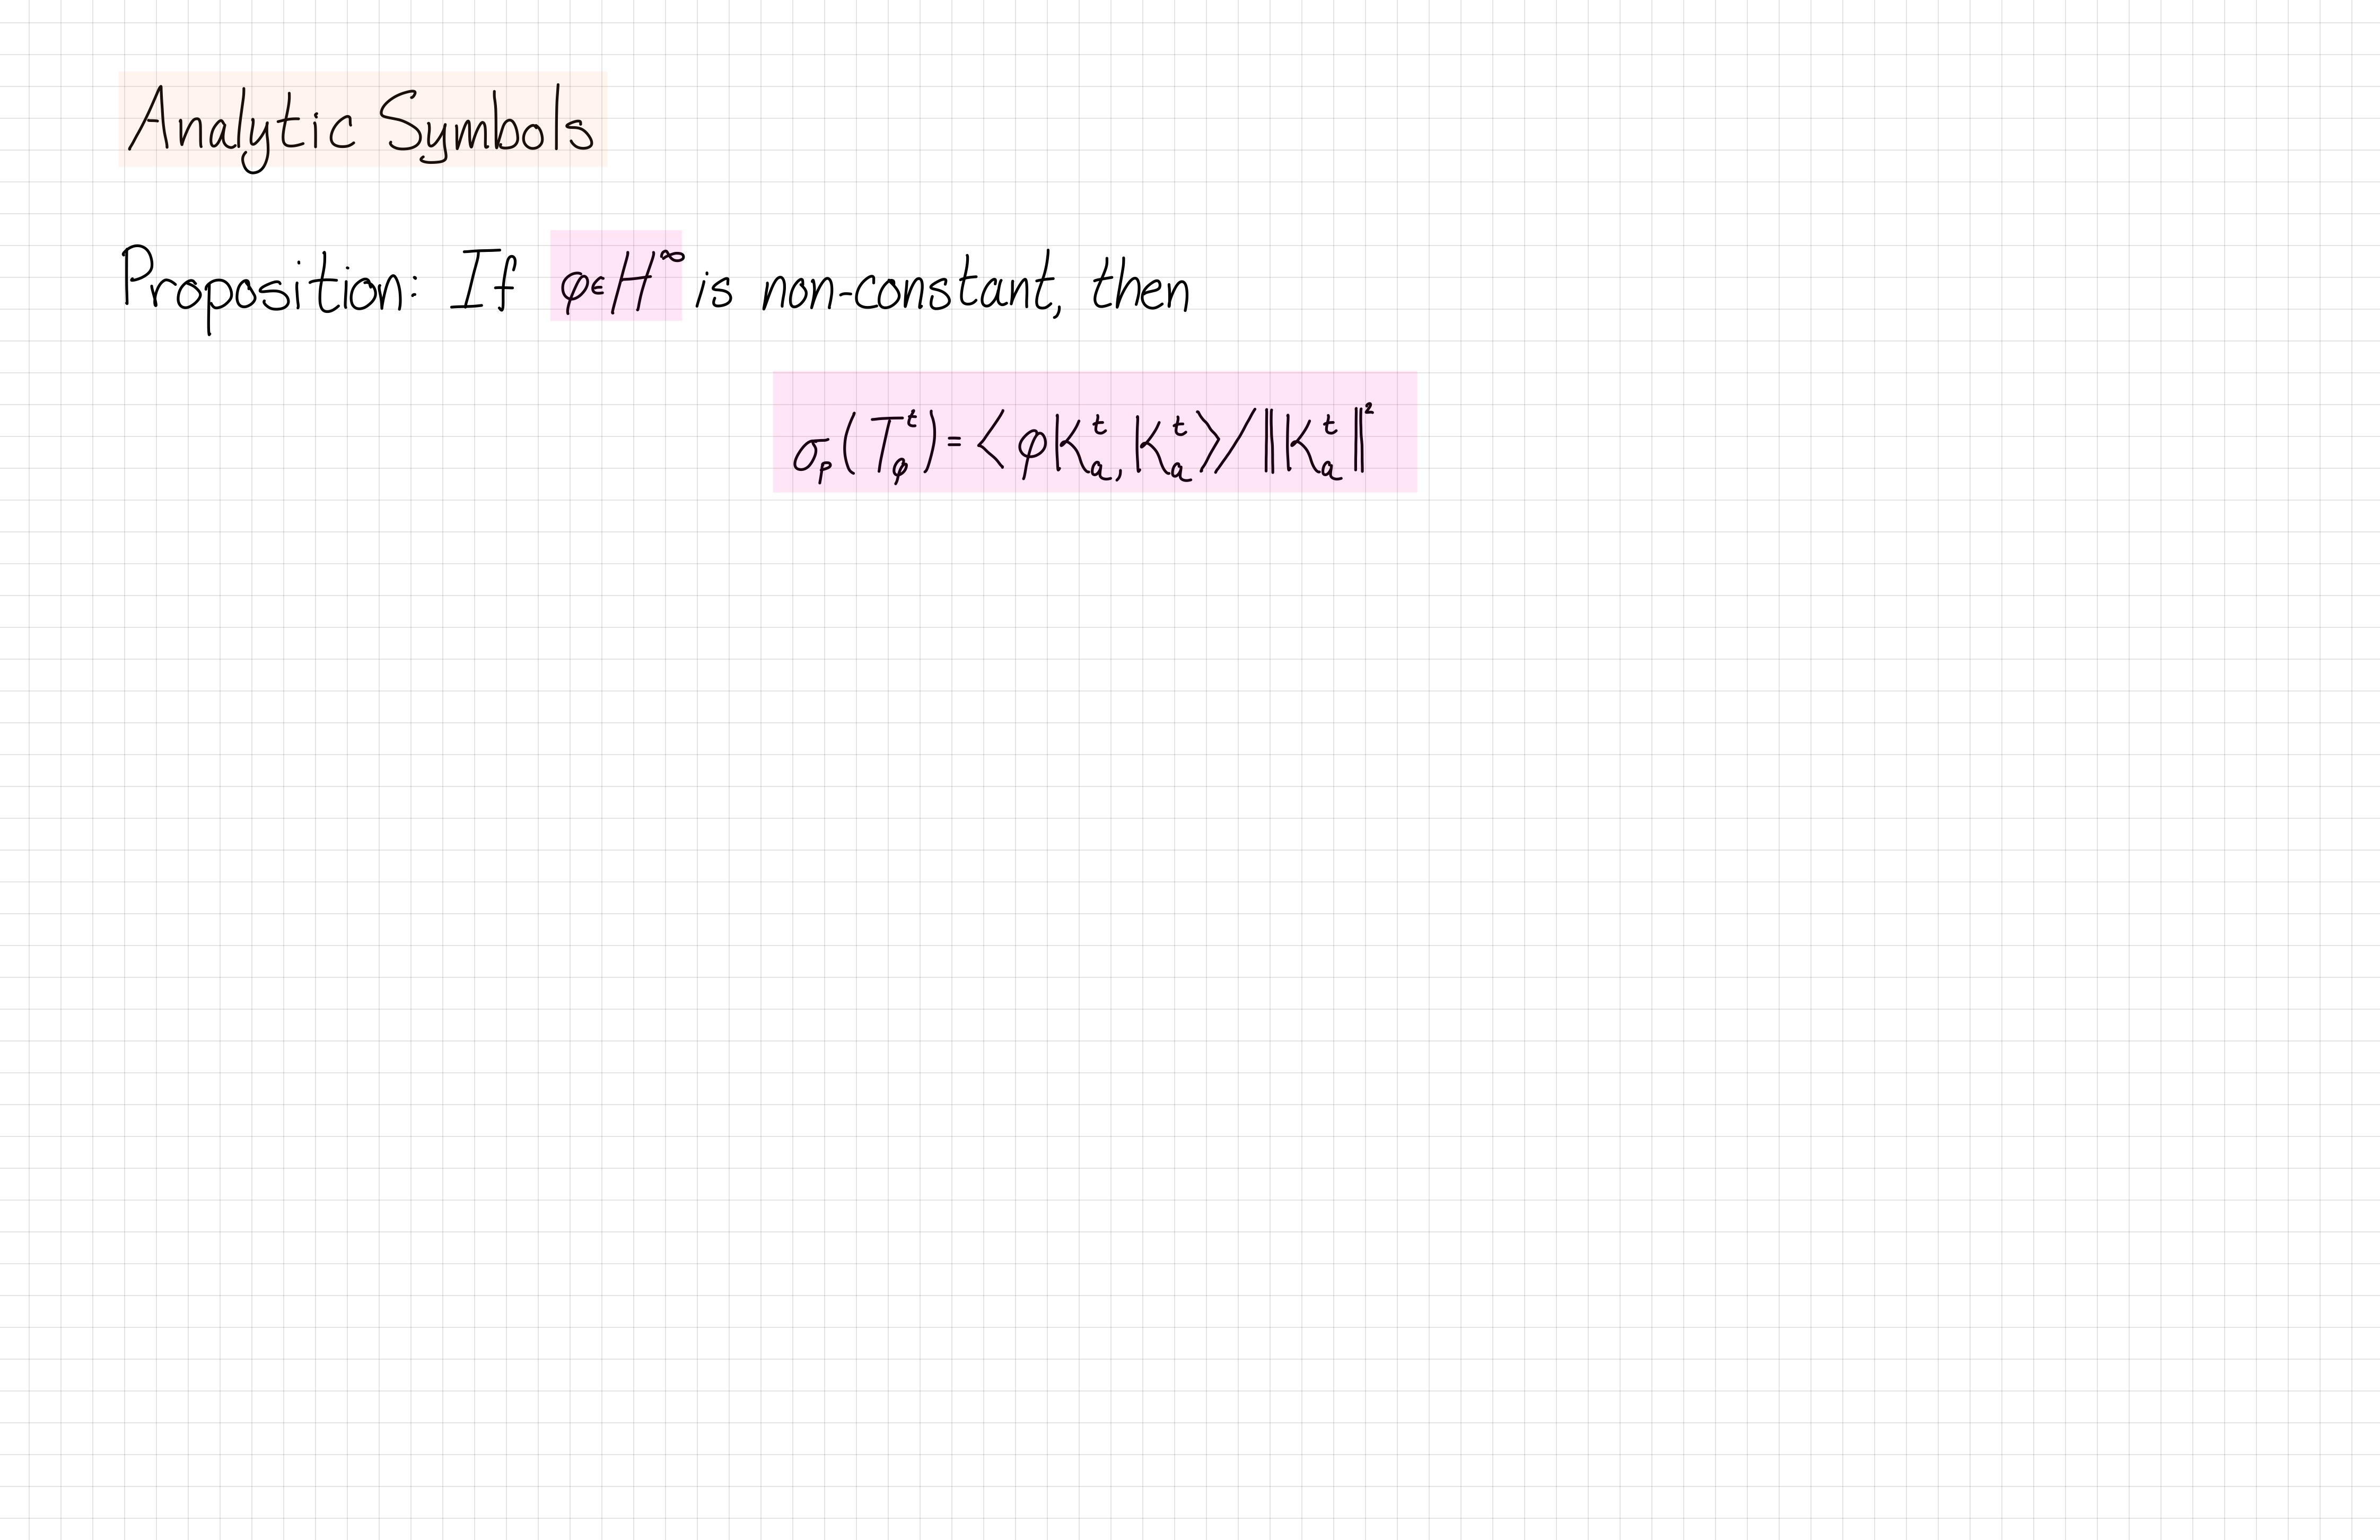 Analytic Symbols
Proposition: If φ∈H^∞ is non-constant, then
σ_p(T_φ^t) = ⟨φK_a^t, K_a^t⟩/‖K_a^t‖²